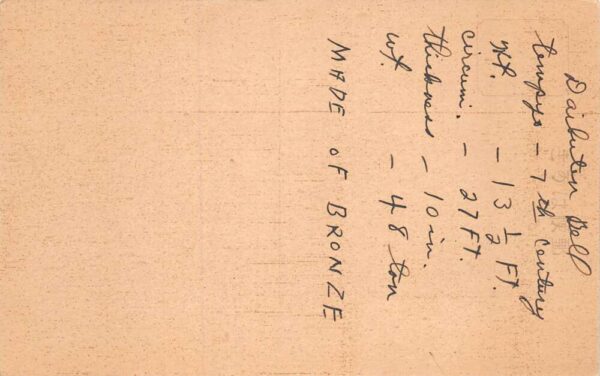 Daibuten Bell
tempyo - 7th century
Ht. - 13 1/2 FT.
circum. - 27 FT.
thickness - 10 in.
wt. - 48 ton
MADE OF BRONZE